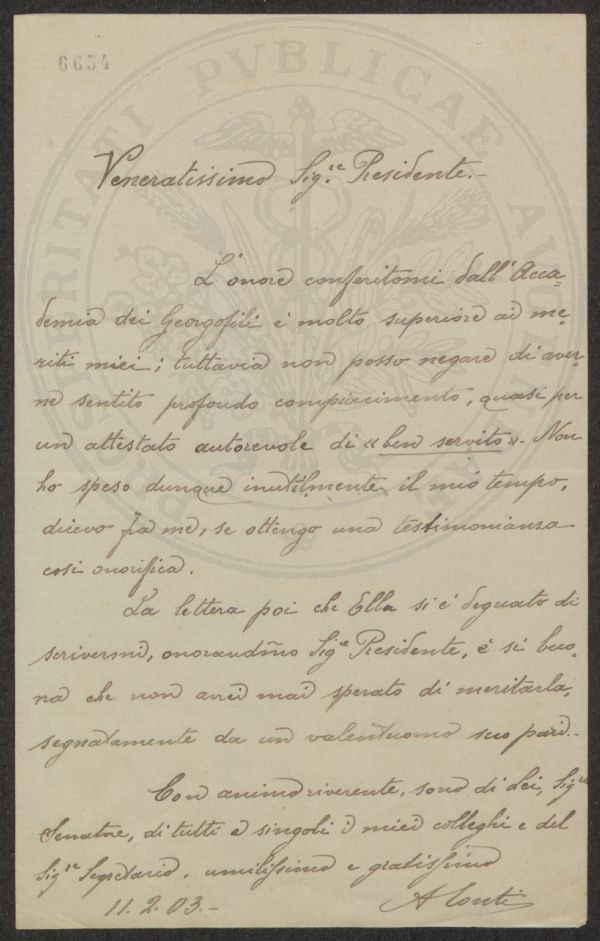 6654
PROSPERITATI PVBLICAE AVGENDAE
Veneratissimo Sig.re Presidente.-
L'onore conferitomi dall'Acca=
demia dei Georgofili è molto superiore ai me=
riti miei; tuttavia non posso negare di aver=
ne sentito profondo compiacimento, quasi per
un attestato autorevole di «ben servito». Non
ho speso dunque inutilmente il mio tempo,
dicevo fra me, se ottengo una testimonianza
così onorifica.
La lettera poi che Ella si è degnato di
scrivermi, onorandmo Sige Presidente, è si buo=
na che non avrei mai sperato di meritarla,
segnatamente da un valentuomo suo pari.-
Con animo riverente, sono di Lei, Sigre
Senatore, di tutti e singoli i miei colleghi e del
Sigre Segretario, umilissimo e gratissimo
11.2.03.-
A Conti